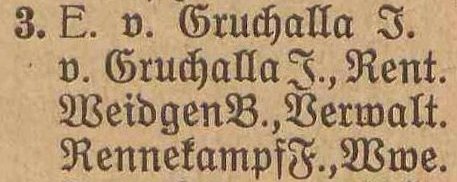 3. E. v. Gruchalla J.
v. Gruchalla J., Rent.
Weidgen B., Verwalt.
Rennekampf F., Wwe.